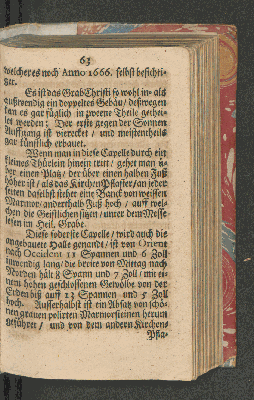 63
welcher es noch Anno 1666. selbst besichti-
get.
Es ist das Grab Christi so wohl in- als
außwendig ein doppeltes Gebäu / deßwegen
kan es gar füglich in zweene Theile gethei-
let werden: Der erste gegen der Sonnen
Auffgang ist viereckt / und meistentheils
gar künstlich erbauet.
Wenn man in diese Capelle durch ein
kleines Thürlein hinein tritt / gehet man zu
der einen Platz / der über einen halben Fuß
höher ist / als das Kirchen Pflaster / an jeder
seiten daselbst stehet eine Banck von weissen
Marmor / anderthalb Fuß hoch / auff wel-
chen die Geistlichen sitzen / unter dem Messe-
lesen im Heil. Grabe.
Diese foderste Capelle / wird auch die
angebauete Halle genandt / ist von Orient
nach Occident 11 Spannen und 6 Zoll
inwendig lang / die breite von Mittag nach
Norden hält 8 Spann und 7 Zoll / mit ei-
nem hohen geschlossenen Gewölbe von der
Erden biß auff 12 Spannen und 5 Zoll
hoch. Ausserhalbst ist ein Absatz von schö-
nen grauen polirten Marmorsteinen herum
geführet / und von dem andern Kirchens
Pfla-